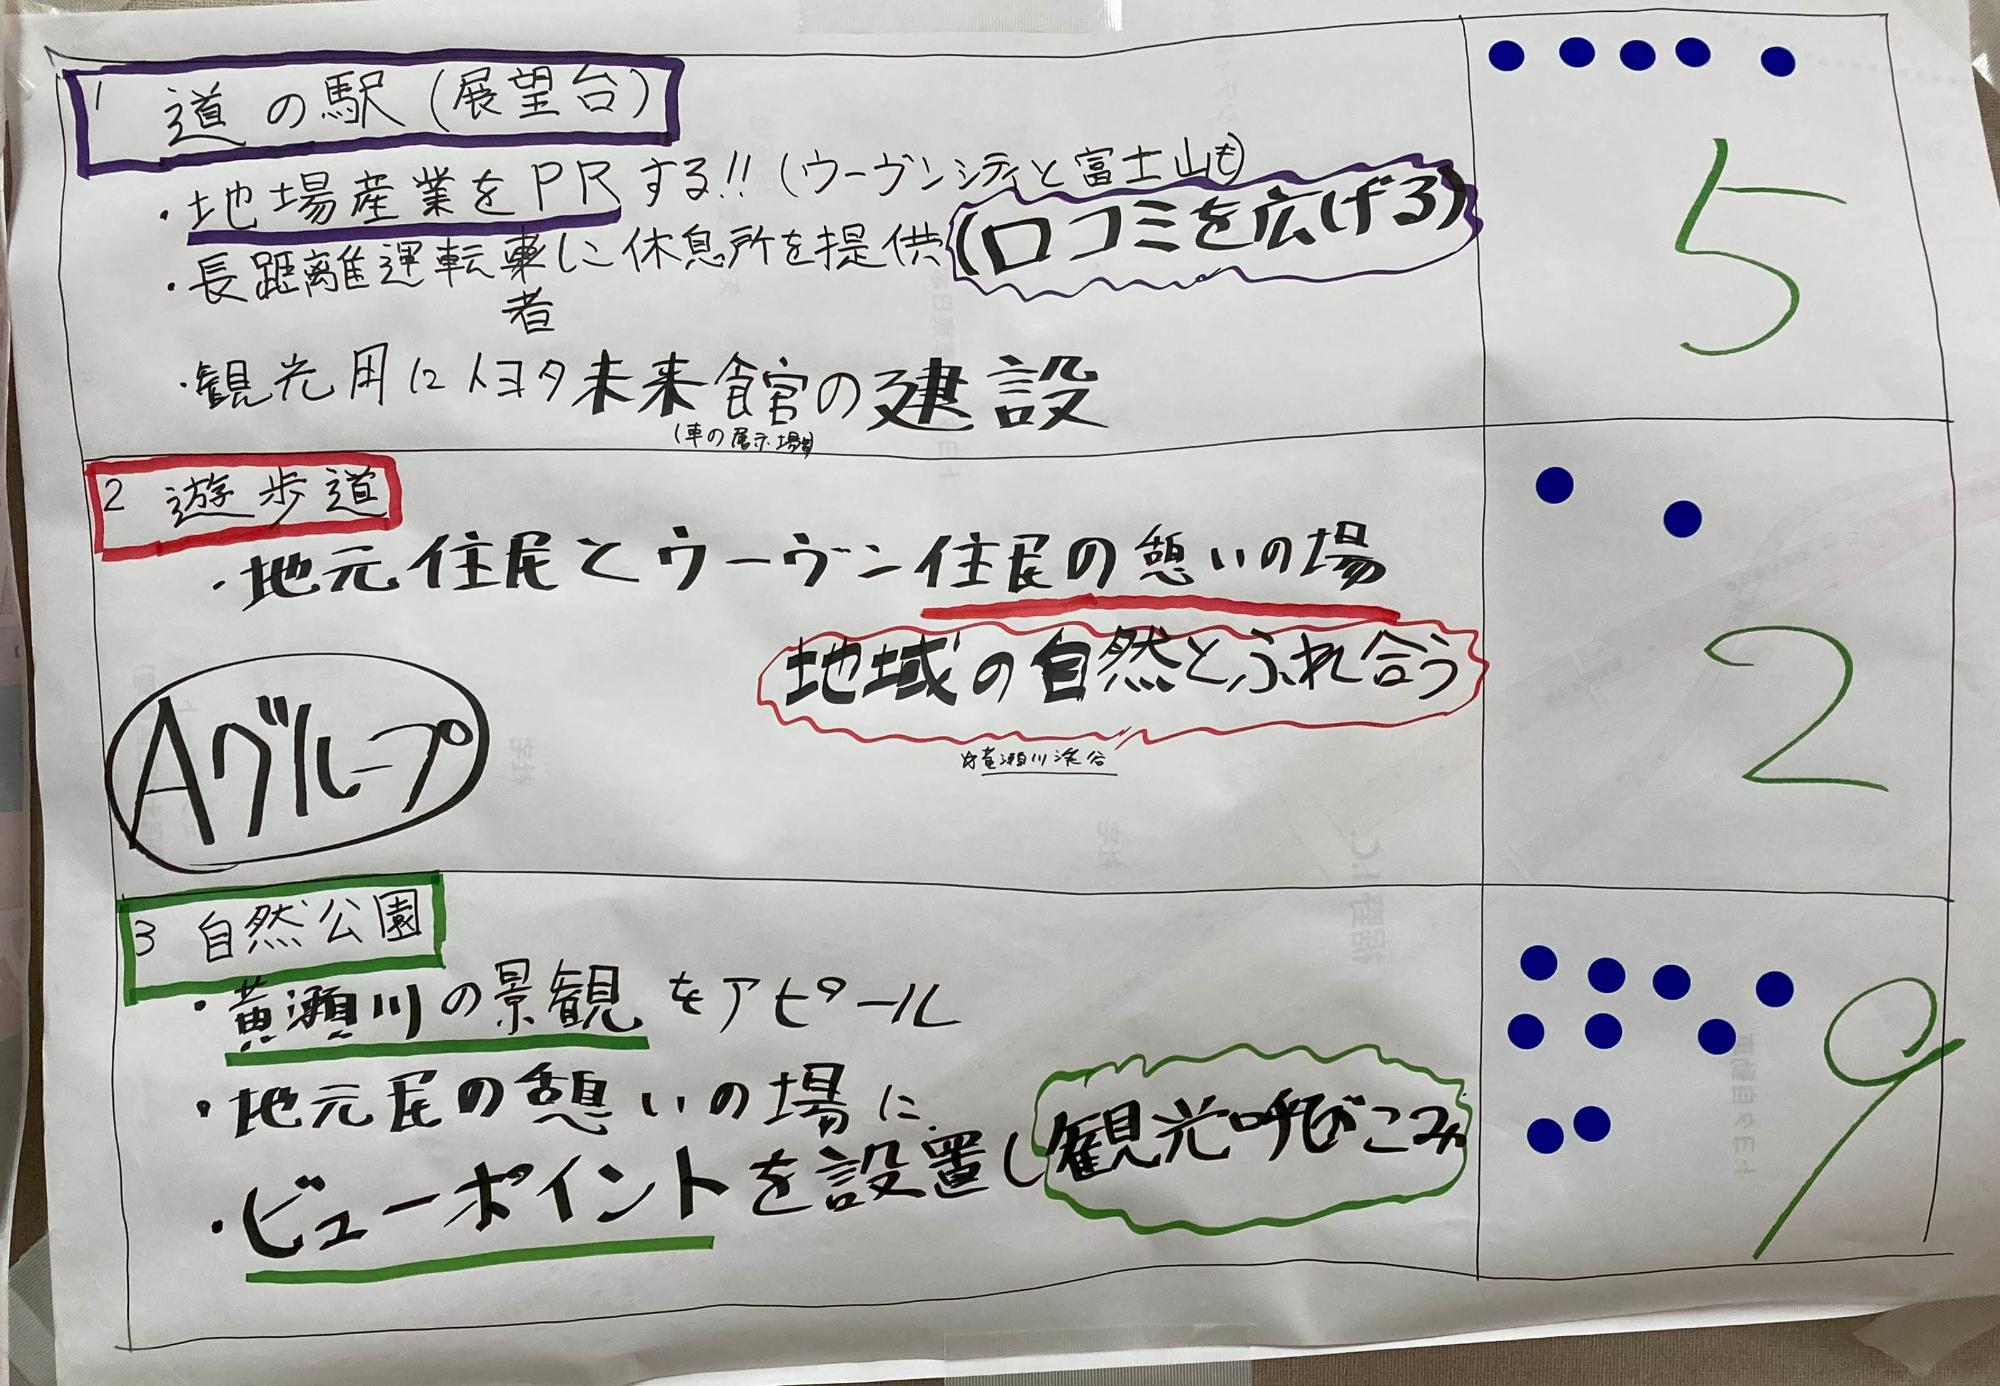 1 道の駅(展望台)
・地場産業をPRする!!(ウーヴンシティと富士山も)
・長距離運転者に休息所を提供(口コミを広げる)
・観光用にトヨタ未来館の建設
(車の展示場)
5
2 遊歩道
・地元住民とウーヴン住民の憩いの場
地域の自然とふれ合う
☆黄瀬川渓谷
2
Aグループ
3 自然公園
・黄瀬川の景観をアピール
・地元民の憩いの場に
・ビューポイントを設置し観光呼びこみ
9